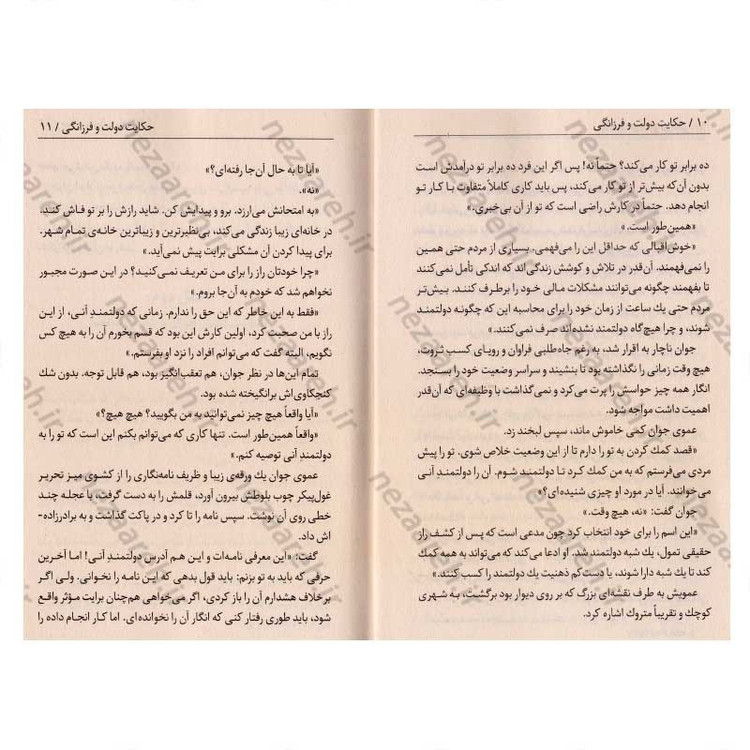 ۱۰ / حکایت دولت و فرزانگی
ده برابر تو کار می‌کند؟ حتماً نه! پس اگر این فرد ده برابر تو درآمدش است
بدون آن‌که بیش‌تر از تو کار می‌کند، پس باید کاری کاملاً متفاوت با کار تو
انجام دهد. حتماً در کارش رازی است که تو از آن بی‌خبری.»
«همین‌طور است.»
«خوش‌اقبالی که حداقل این را می‌فهمی. بسیاری از مردم حتی همین
را نمی‌فهمند. آن‌قدر در تلاش و کوشش زندگی‌اند که اندکی تأمل نمی‌کنند
تا بفهمند چگونه می‌توانند مشکلات مالی خود را برطرف کنند. بیش‌تر
مردم حتی یك ساعت از زمان خود را برای محاسبه این که چگونه دولتمند
شوند، و چرا هیچ‌گاه دولتمند نشده‌اند صرف نمی‌کنند.»
جوان ناچار به اقرار شد، به رغم جاه‌طلبی فراوان و رویای کسب ثروت،
هیچ وقت زمانی را نگذاشته بود تا بنشیند و سراسر وضعیت خود را بسنجد.
انگار همه چیز حواسش را پرت می‌کرد و نمی‌گذاشت با وظیفه‌ای که آن‌قدر
اهمیت داشت مواجه شود.
عموی جوان کمی خاموش ماند، سپس لبخند زد.
«قصد کمك کردن به تو را دارم تا از این وضعیت خلاص شوی. تو را پیش
مردی می‌فرستم که به من کمك کرد تا دولتمند شوم. آن را دولتمند آنی
می‌خوانند. آیا در مورد او چیزی شنیده‌ای؟»
جوان گفت: «نه، هیچ وقت.»
«این اسم را برای خود انتخاب کرد چون مدعی است که پس از کشف راز
حقیقی تمول، یك شبه دولتمند شد. او ادعا می‌کند که می‌تواند به همه کمك
کند تا یك شبه دارا شوند، یا دست‌کم ذهنیت یك دولتمند را کسب کنند.»
عمویش به طرف نقشه‌ای بزرگ که بر روی دیوار بود برگشت، به شهری
کوچك و تقریباً متروك اشاره کرد.
حکایت دولت و فرزانگی / ۱۱
«آیا تا به حال آن‌جا رفته‌ای؟»
«نه.»
«به امتحانش می‌ارزد. برو و پیدایش کن. شاید رازش را بر تو فاش کند.
در خانه‌ای زیبا زندگی می‌کند، بی‌نظیرترین و زیباترین خانه‌ی تمام شهر.
برای پیدا کردن آن مشکلی برایت پیش نمی‌آید.»
«چرا خودتان راز را برای من تعریف نمی‌کنید؟ در این صورت مجبور
نخواهم شد که خودم به آن‌جا بروم.»
«فقط به این خاطر که این حق را ندارم. زمانی که دولتمندِ آنی، از این
راز با من صحبت کرد، اولین کارش این بود که قسم بخورم آن را به هیچ کس
نگویم، البته گفت که می‌توانم افراد را نزد او بفرستم.»
تمام این‌ها در نظر جوان، هم تعقب‌انگیز بود، هم قابل توجه. بدون شك
کنجکاوی‌اش برانگیخته شده بود.
«آیا واقعاً هیچ چیز نمی‌توانید به من بگویید؟ هیچ هیچ؟»
«واقعاً همین‌طور است. تنها کاری که می‌توانم بکنم این است که تو را به
دولتمندِ آنی توصیه کنم.»
عموی جوان یك ورقه‌ی زیبا و ظریف نامه‌نگاری را از کشوی میز تحریر
غول‌پیکر چوب بلوطش بیرون آورد، قلمش را به دست گرفت، با عجله چند
خطی روی آن نوشت. سپس نامه را تا کرد و در پاکت گذاشت و به برادرزاده‌-
اش داد.
گفت: «این معرفی نامه‌ات و این هم آدرس دولتمندِ آنی! اما آخرین
حرفی که باید به تو بزنم: باید قول بدهی که این نامه را نخوانی. ولی اگر
برخلاف هشدارم آن را باز کردی، اگر می‌خواهی هم‌چنان برایت مؤثر واقع
شود، باید طوری رفتار کنی که انگار آن را نخوانده‌ای. اما کار انجام داده را
nezaareh.ir